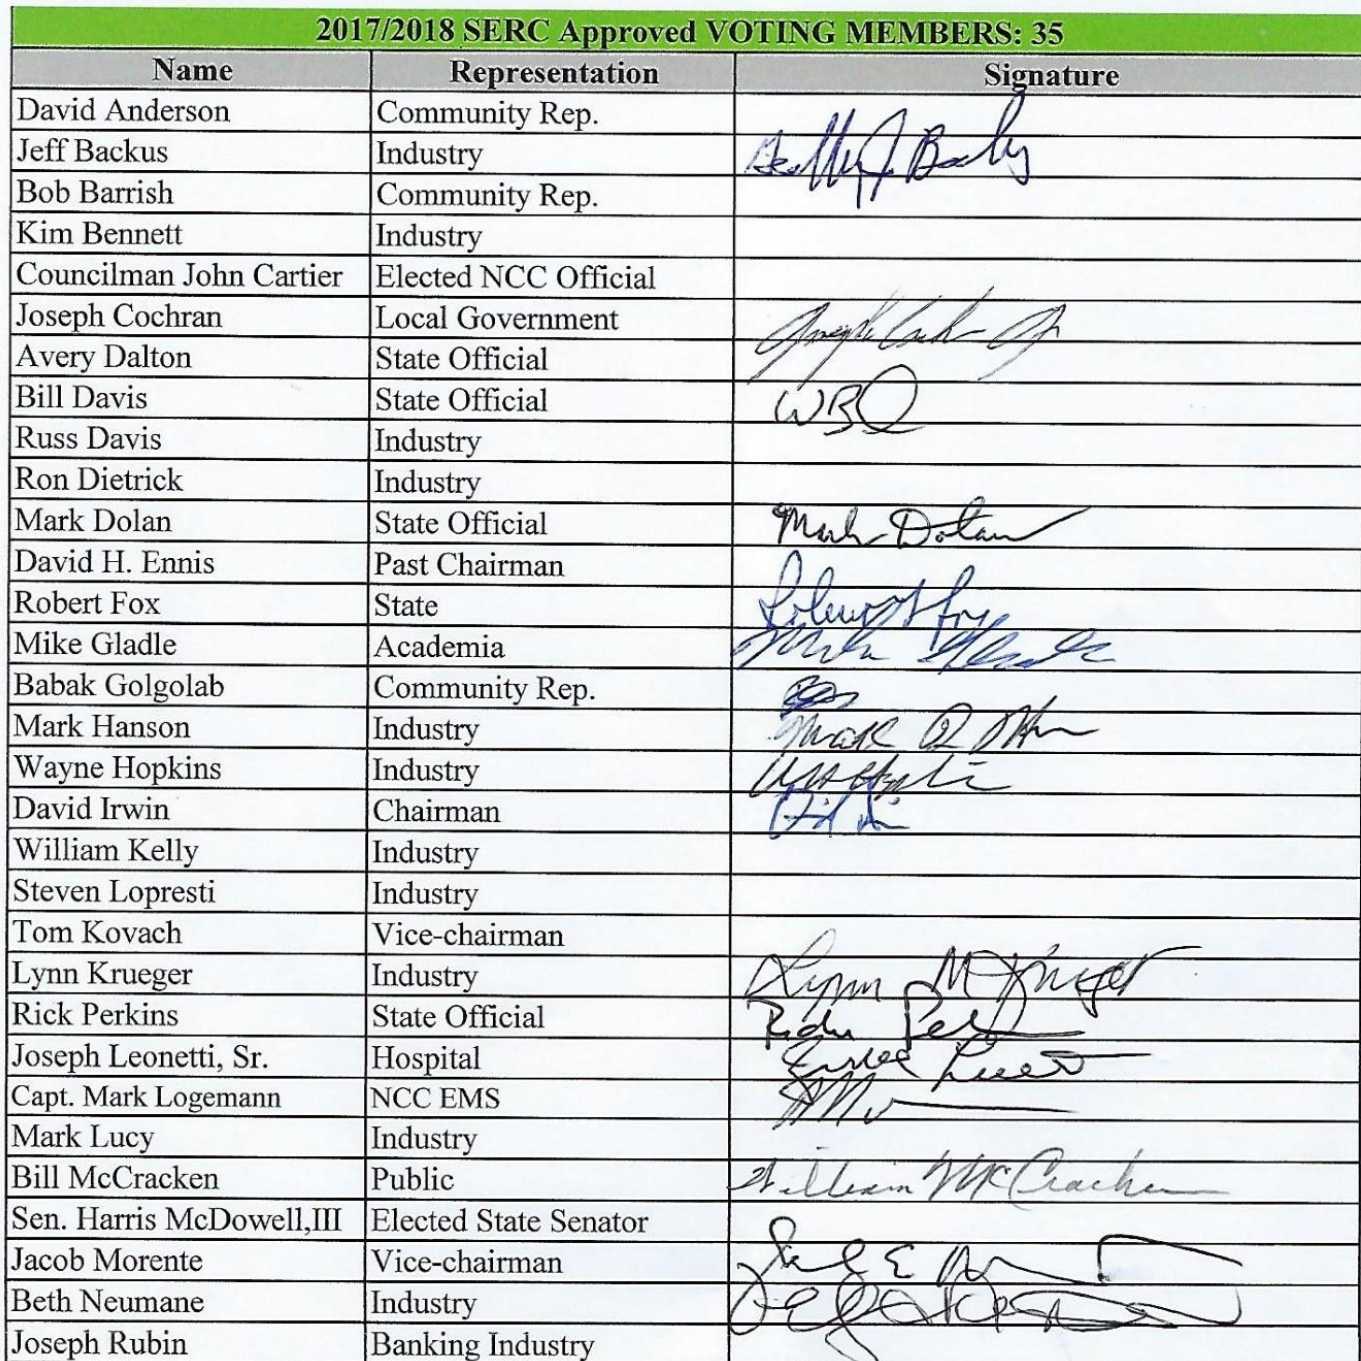 2017/2018 SERC Approved VOTING MEMBERS: 35
Name Representation Signature
David Anderson Community Rep.
Jeff Backus Industry
Bob Barrish Community Rep.
Kim Bennett Industry
Councilman John Cartier Elected NCC Official
Joseph Cochran Local Government
Avery Dalton State Official
Bill Davis State Official WBD
Russ Davis Industry
Ron Dietrick Industry
Mark Dolan State Official Mark Dolan
David H. Ennis Past Chairman
Robert Fox State
Mike Gladle Academia
Babak Golgolab Community Rep.
Mark Hanson Industry
Wayne Hopkins Industry
David Irwin Chairman
William Kelly Industry
Steven Lopresti Industry
Tom Kovach Vice-chairman
Lynn Krueger Industry Lynn M Krueger
Rick Perkins State Official
Joseph Leonetti, Sr. Hospital
Capt. Mark Logemann NCC EMS
Mark Lucy Industry
Bill McCracken Public William McCracken
Sen. Harris McDowell,III Elected State Senator
Jacob Morente Vice-chairman
Beth Neumane Industry
Joseph Rubin Banking Industry